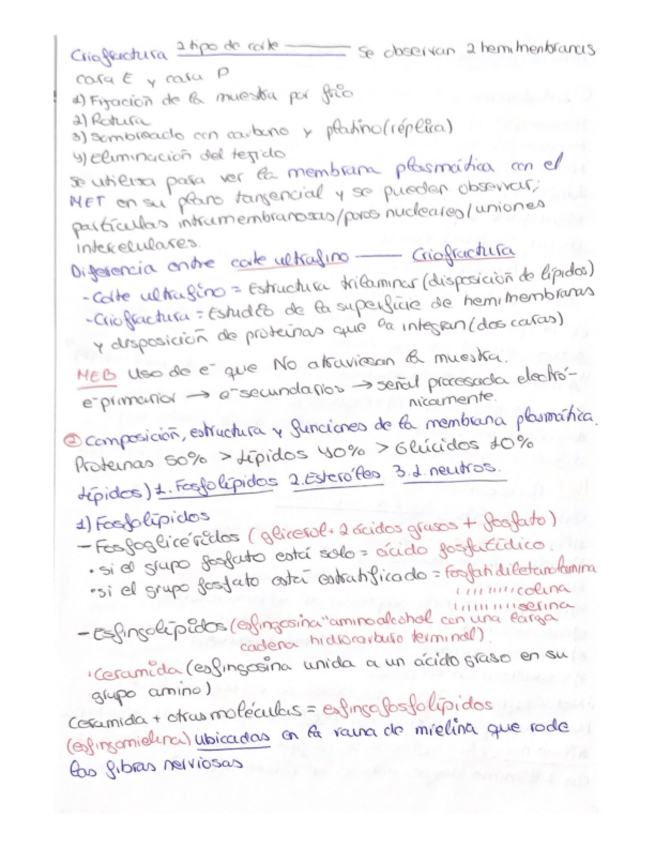 Criofractura 2 tipo de corte ——— Se observan 2 hemimenbranas
cara E y cara P
1) Fijación de la muestra por frío
2) Rotura
3) Sombreado con carbono y platino (réplica)
4) eliminación del tejido
se utiliza para ver la membrana plasmática con el
MET en su plano tangencial y se pueden observar;
partículas intramembranosas/poros nucleares/uniones
intercelulares.
Diferencia entre corte ultrafino —— Criofractura
-Corte ultrafino = Estructura trilaminar (disposición de lípidos)
-Criofractura = Estudio de la superficie de hemimembranas
y disposición de proteínas que la integran (dos caras)
MEB Uso de e⁻ que NO atraviesan la muestra.
e⁻primarior → e⁻secundarios → señal procesada electró-
nicamente.
② Composición, estructura y funciones de la membrana plasmática.
Proteínas 50% > Lípidos 40% > Glúcidos 10%
Lípidos) 1. Fosfolípidos 2. Esteroles 3. L neutros.
1) Fosfolípidos
- Fosfoglicéridos (glicerol + 2 ácidos grasos + fosfato)
• si el grupo fosfato está solo = ácido fosfatídico.
• si el grupo fosfato está estratificado = fosfatidiletanolamina
ııııııı colina
ııııııı serina
- Esfingolípidos (esfingosina "aminoalcohol con una larga
cadena hidrocarburo terminal)
• Ceramida (esfingosina unida a un ácido graso en su
grupo amino)
Ceramida + otras moléculas = esfingofosfolípidos
(esfingomielina) ubicadas en la vaina de mielina que rode
las fibras nerviosas